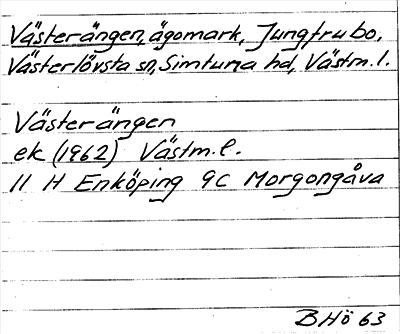 Västerängen, ägomark, Jungfrubo,
Västerlövsta sn, Simtuna hd, Västm. l.
Västerängen
ek (1962) Västm. l.
11 H Enköping 9c Morgongåva
BHö 63